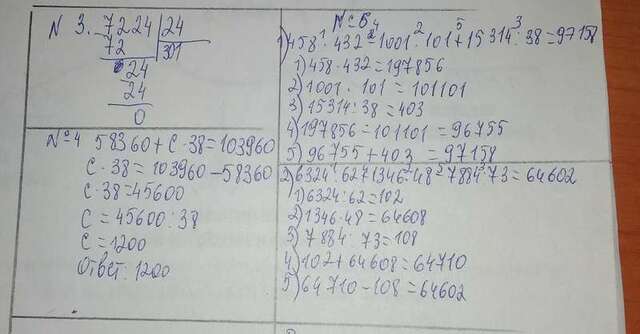 N 3. 7224 | 24
72 | 301
24
24
0
№4 58360 + C · 38 = 103960
C · 38 = 103960 - 58360
C · 38 = 45600
C = 45600 : 38
C = 1200
Ответ: 1200
№5
1) 458 · 432 - 1001 · 101 + 15314 : 38 = 97158
1) 458 · 432 = 197856
2) 1001 · 101 = 101101
3) 15314 : 38 = 403
4) 197856 = 101101 = 96755
5) 96755 + 403 = 97158
2) 6324 : 62 + 1346 · 48 - 7884 : 73 = 64602
1) 6324 : 62 = 102
2) 1346 · 48 = 64608
3) 7884 : 73 = 108
4) 102 + 64608 = 64710
5) 64710 - 108 = 64602